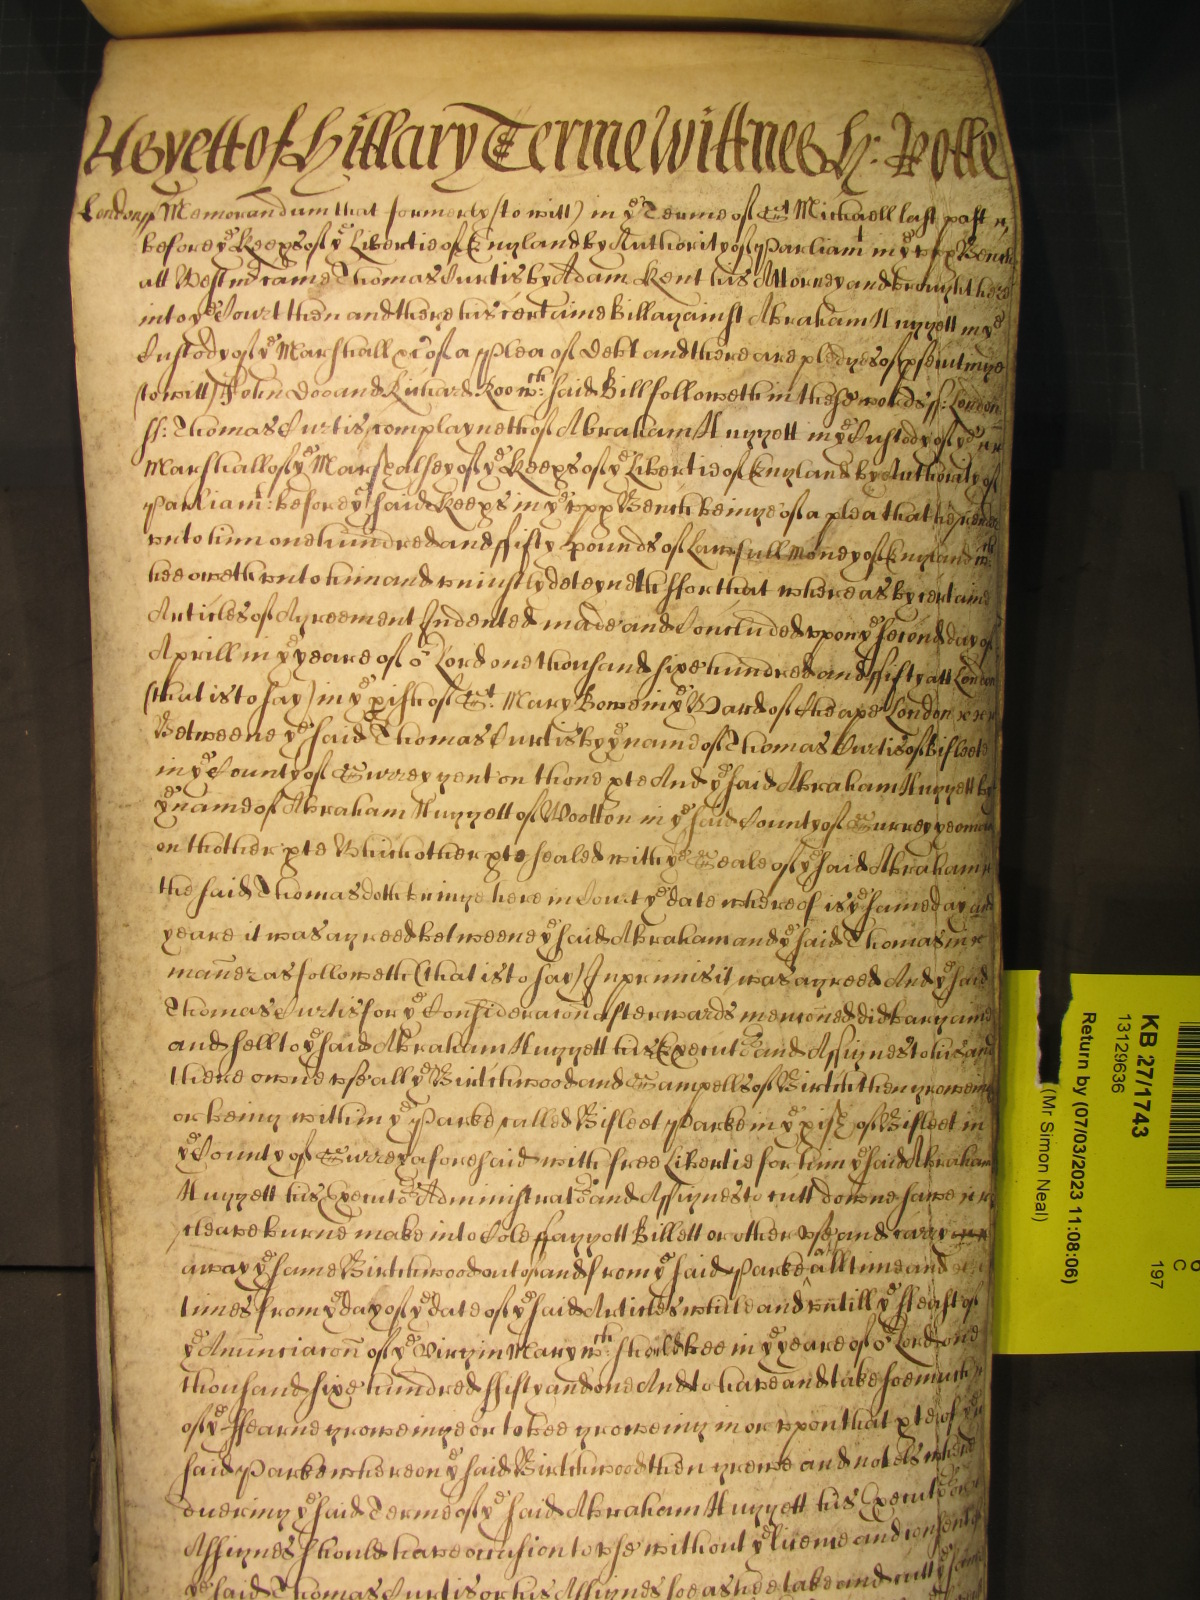 As yett of Hillary Terme Wittnes H: Rolle
London ss Memorandum that formerly (to witt) in ye Terme of St Michaell last past
before ye Keeps of ye Libertie of England by Authority of Parliamt in ye upp Bench
att Westmr came Thomas Curtis by Adam Kent his Attorney and brought here
into ye Court then and there his certaine Bill against Abraham Huggett in ye
Custody of ye Marshall &c of a Plea of Debt and there are pledges of psecutinge
(to witt) John Doo and Richard Roo wch: said Bill followeth in these words ss: London
ss: Thomas Curtis complayneth of Abraham Huggett in ye Custody of ye
Marshall of ye Marshalsey of ye Keeps of ye Libertie of England by Authority of
Parliamt: before ye said Keeps in ye upp Bench beinge of a plea that he render
unto him one hundred and fifty pounds of Lawfull money of England wch:
hee oweth unto him and uniustly deteyneth ffor that whereas by certaine
Articles of Agreement Indented made and Concluded upon ye second day of
Aprill in ye yeare of or Lord one thousand sixe hundred and ffifty att London
(that is to say) in ye pish of St. Mary Bowe in ye Ward of Cheape London
Betweene ye said Thomas Curtis by ye name of Thomas Curtis of Bifleete
in ye County of Surrey gent on thone pte And ye said Abraham Huggett by
ye name of Abraham Huggett of Wootton in ye said County of Surrey yeoman
on thother pte Which other pte sealed with ye Seale of ye said Abraham
the said Thomas doth bringe here in Court ye date whereof is ye same day and
yeare it was agreed betweene ye said Abraham and ye said Thomas in
mañer as followeth (that is to say) Inprimis it was agreed And ye said
Thomas Curtis for ye Consideracoñ afterwards mencoñed did bargaine
and sell to ye said Abraham Huggett his Executors and Assignes to his and
there owne use all ye Birtchwood and Sampells of Birtch then groweing
or being within ye Parke called Bifleet Parke in ye pish of Bifleet in
ye County of Surrey aforesaid with free Libertie for him ye said Abraham
Huggett his Executors Administrators and Assignes to cutt downe
cleave burne make into Cole ffaggott Billett or other use and carry
away ye same Birtchwood out of and from ye said Parke att all time and
times from ye day of ye date of ye said Articles untill ye ffeast of
ye Anunciacoñ of ye Virgin Mary wch: should bee in ye yeare of or Lord one
thousand sixe hundred ffifty and one And to have and take soe much
of ye ffearne groweinge or to bee groweing in or upon that pte of ye
said Parke whereon ye said Birtchwood then grewe and not els where
dureing ye said Terme of ye said Abraham Huggett his Executors or
Assignes should have occasion to use without ye licence and consent of
ye said Thomas Curtis or his Assignes soe as hee take and cutt ye same
KB 27/1743
13129636
Return by (07/03/2023 11:08:06)
(Mr Simon Neal)
C
197